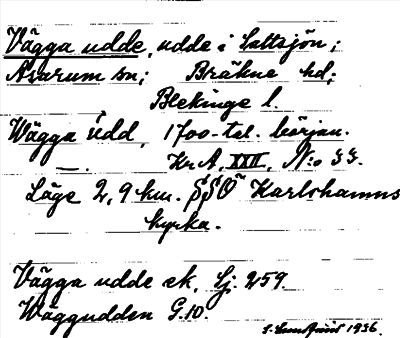 Vägga udde, udde i Saltsjön;
Asarum sn; Bräkne hd;
Blekinge l.
Wägga udd, 1700-tal. början.
—. Kr A, XXII, N:o 33.
Läge 2,9 km. SSO Karlshamns
kyrka.
Vägga udde ek. Lj. 259.
Wäggudden G.10.
1936.